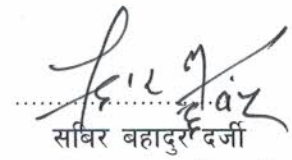 साबिर बहादुर दर्जी